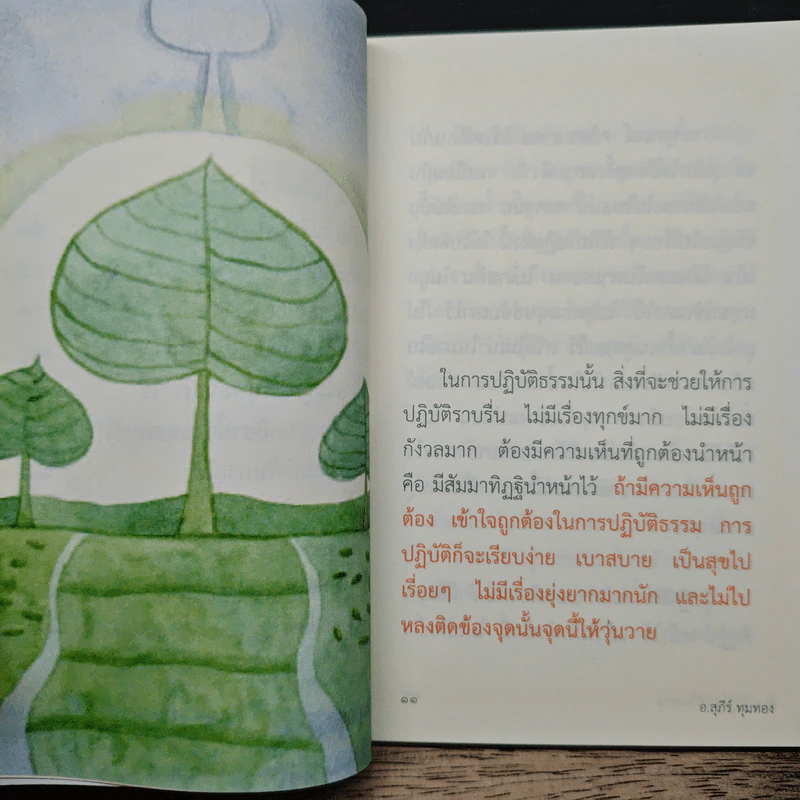 ในการปฏิบัติธรรมนั้น สิ่งที่จะช่วยให้การ
ปฏิบัติราบรื่น ไม่มีเรื่องทุกข์มาก ไม่มีเรื่อง
กังวลมาก ต้องมีความเห็นที่ถูกต้องนำหน้า
คือ มีสัมมาทิฏฐินำหน้าไว้ ถ้ามีความเห็นถูก
ต้อง เข้าใจถูกต้องในการปฏิบัติธรรม การ
ปฏิบัติก็จะเรียบง่าย เบาสบาย เป็นสุขไป
เรื่อยๆ ไม่มีเรื่องยุ่งยากมากนัก และไม่ไป
หลงติดข้องจุดนั้นจุดนี้ให้วุ่นวาย
๑๑
อ.สุภีร์ ทุมทอง